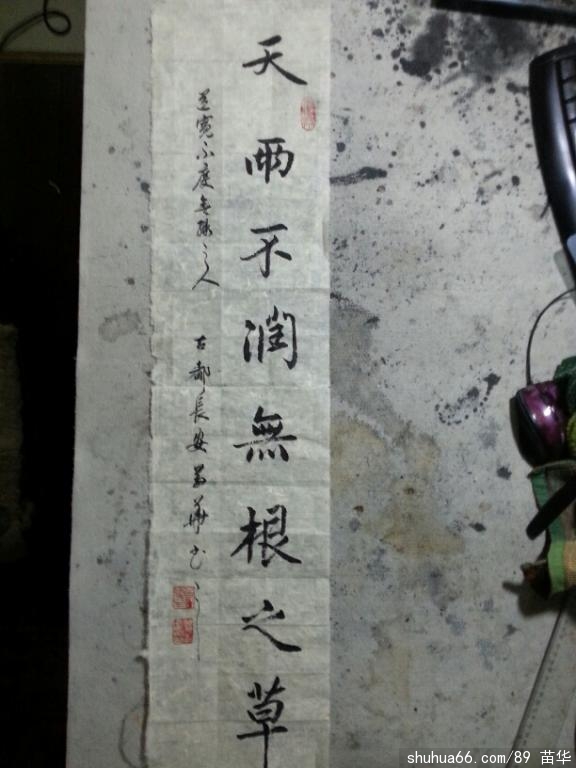 天雨不润無根之草
道寛不度無缘之人
古都長安苗華书之
shuhua66.com/89 苗华